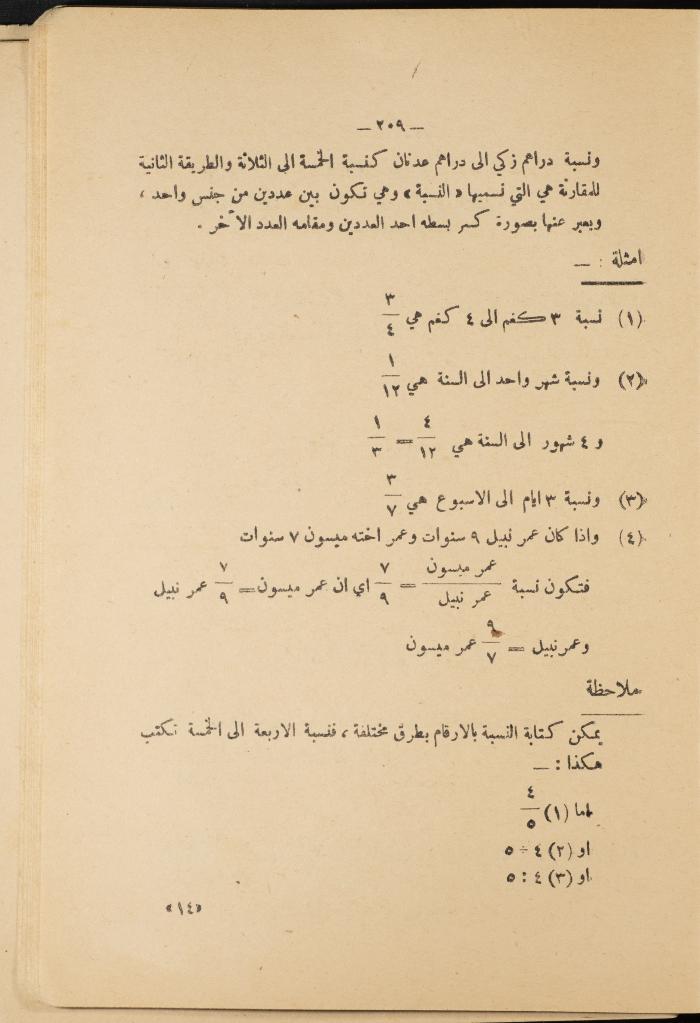 — ٢٥٩ —
ونسبة دراهم زكي الى دراهم عدنان كنسبة الخمسة الى الثلاثة والطريقة الثانية
للمقارنة هي التي نسميها « النسبة » وهي تكون بين عددين من جنس واحد ،
ويعبر عنها بصورة كسر بسطه احد العددين ومقامه العدد الآخر .
امثلة : —
(١) نسبة ٣ كغم الى ٤ كغم هي ٣/٤
(٢) ونسبة شهر واحد الى السنة هي ١/١٢
و ٤ شهور الى السنة هي ٤/١٢ = ١/٣
(٣) ونسبة ٣ ايام الى الاسبوع هي ٣/٧
(٤) واذا كان عمر نبيل ٩ سنوات وعمر اخته ميسون ٧ سنوات
فتكون نسبة عمر ميسون/عمر نبيل = ٧/٩ اي ان عمر ميسون = ٧/٩ عمر نبيل
وعمر نبيل = ٩/٧ عمر ميسون
ملاحظة
يمكن كتابة النسبة بالارقام بطرق مختلفة ، فنسبة الاربعة الى الخمسة تكتب
هكذا : —
اما (١) ٤/٥
او (٢) ٤ ÷ ٥
او (٣) ٤ : ٥
«١٤»